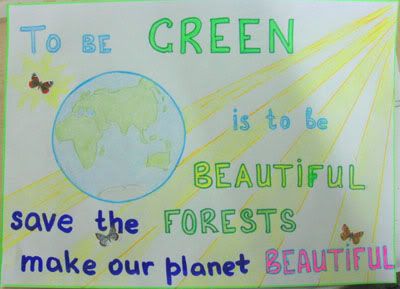 TO BE GREEN
is to be
BEAUTIFUL
save the FORESTS
make our planet BEAUTIFUL